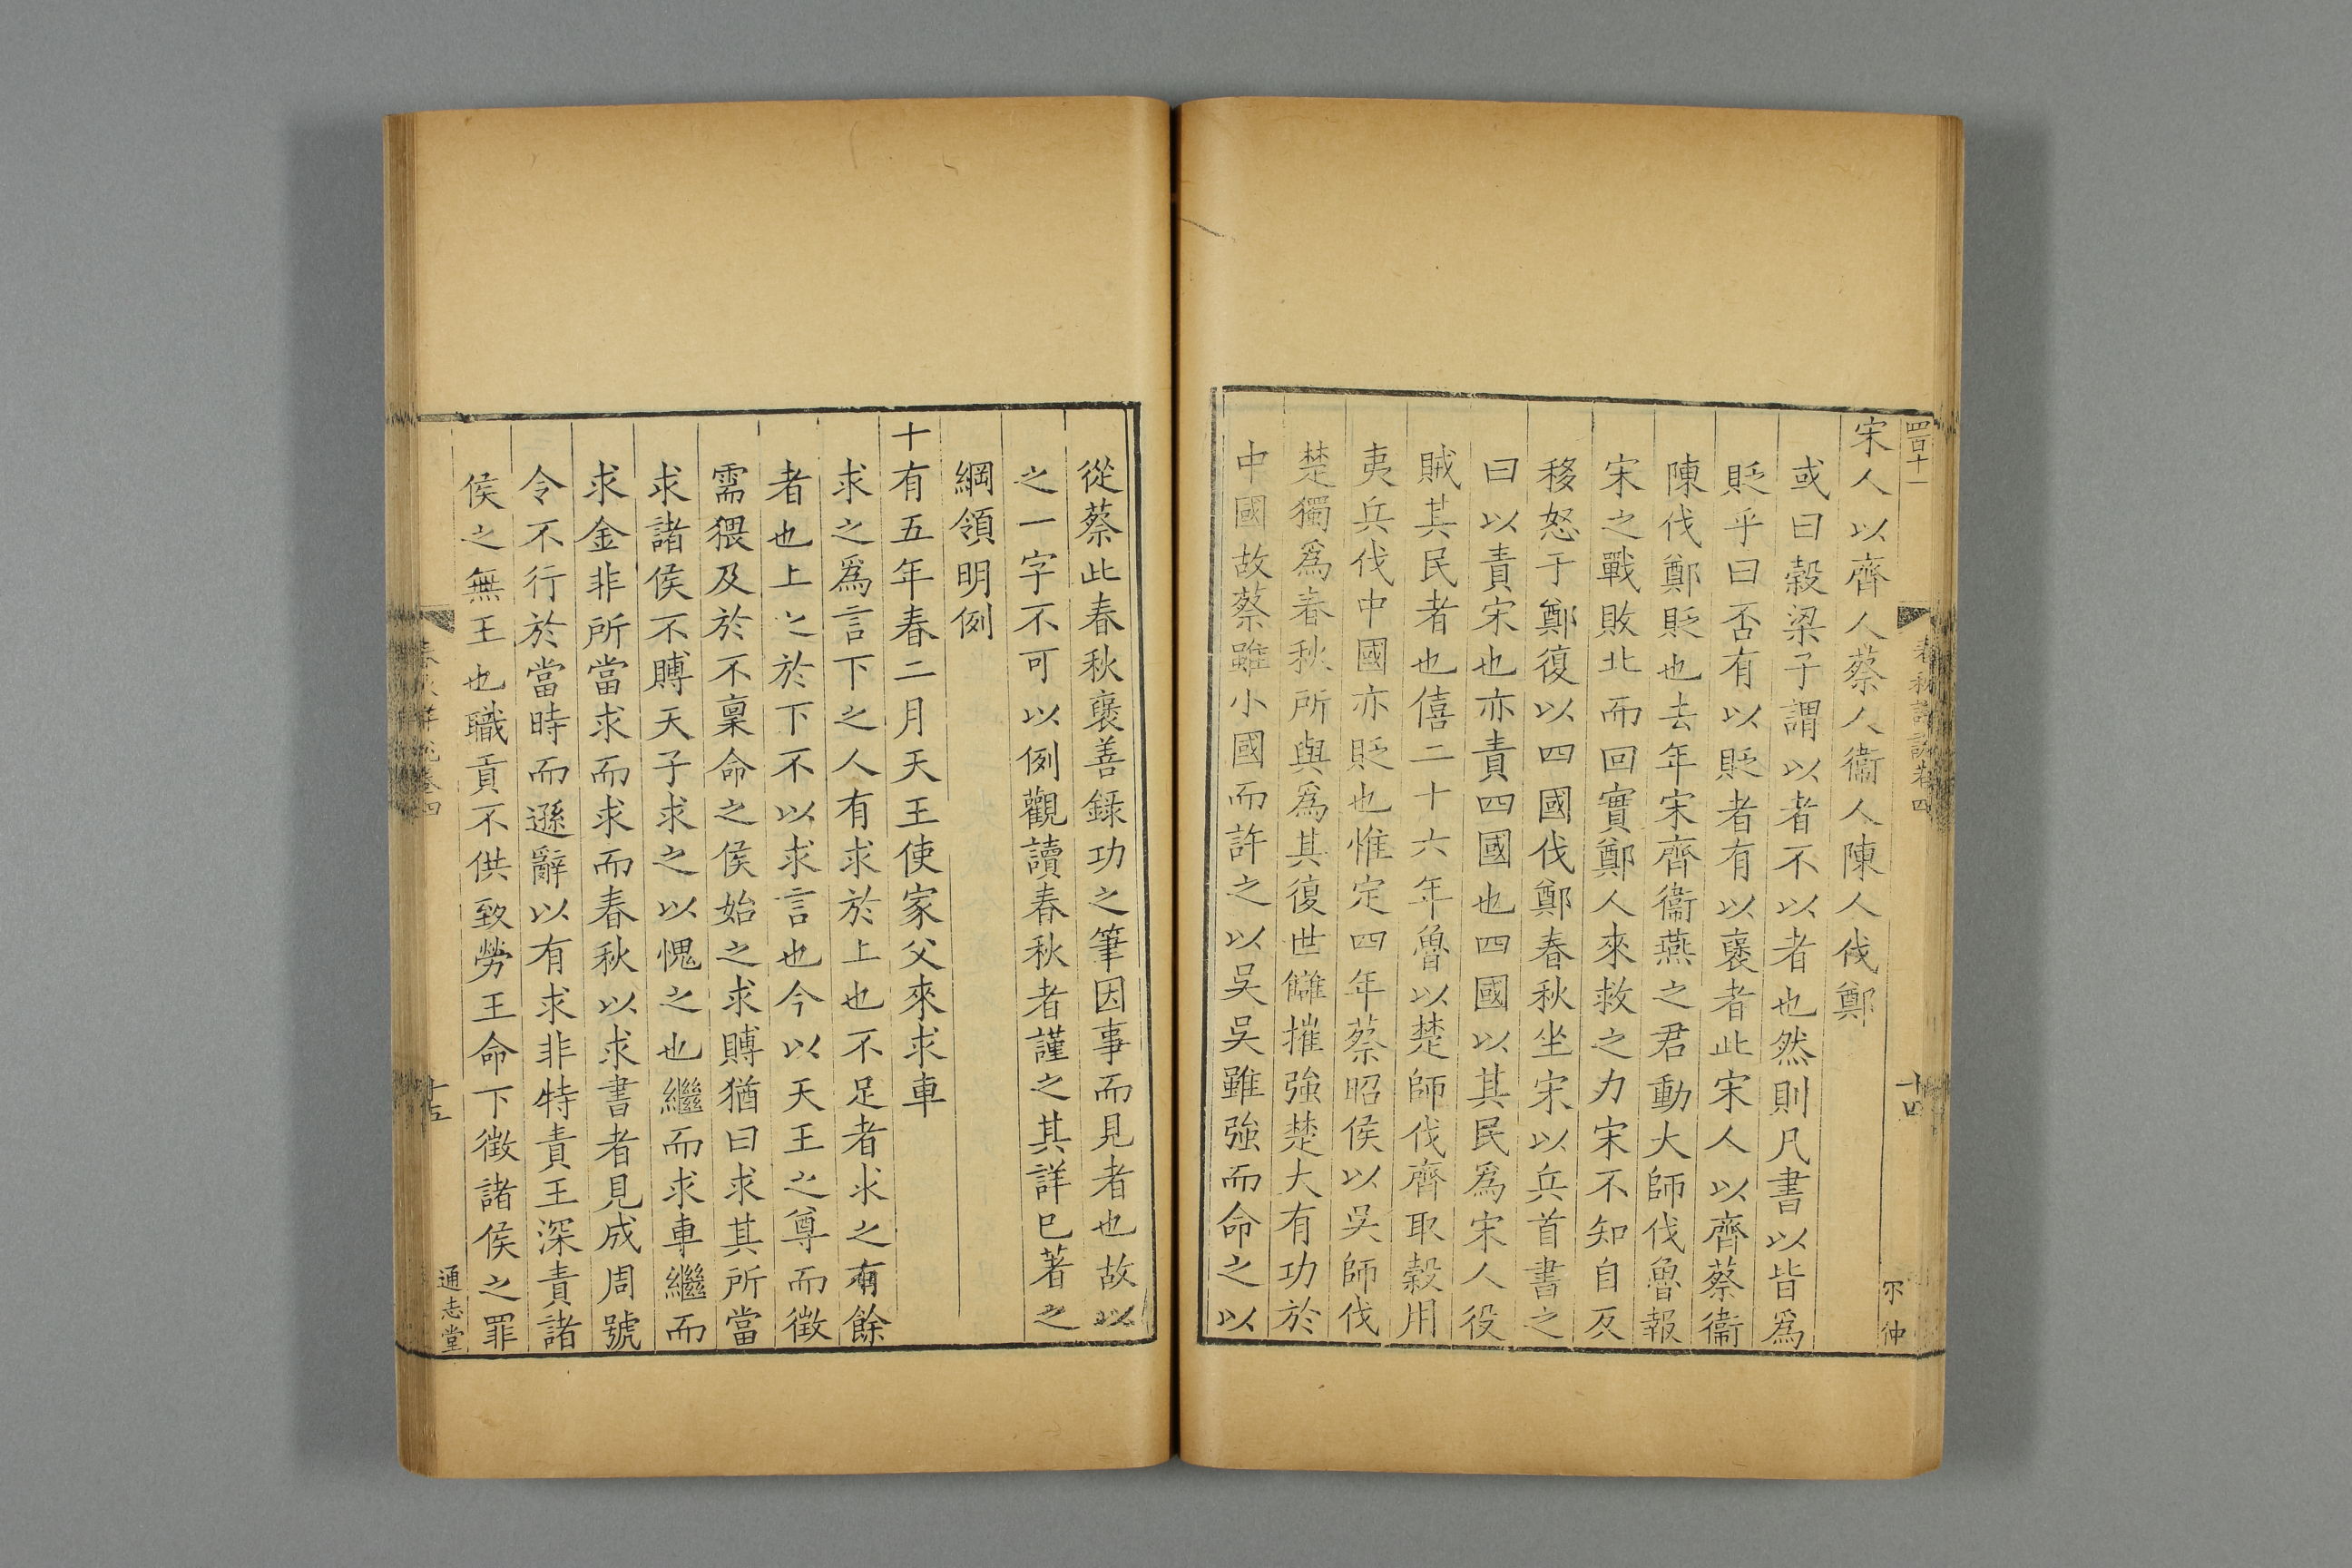 四百十一
春秋詳說卷四
十四
尔仲
宋人以齊人蔡人衞人陳人伐鄭
或曰穀梁子謂以者不以者也然則凡書以皆爲
貶乎曰否有以貶者有以襃者此宋人以齊蔡衞
陳伐鄭貶也去年宋齊衞燕之君動大師伐魯報
宋之戰敗北而回實鄭人來救之力宋不知自反
移怒于鄭復以四國伐鄭春秋坐宋以兵首書之
曰以責宋也亦責四國也四國以其民爲宋人役
賊其民者也僖二十六年魯以楚師伐齊取穀用
夷兵伐中國亦貶也惟定四年蔡昭侯以吳師伐
楚獨爲春秋所與爲其復世讎摧強楚大有功於
中國故蔡雖小國而許之以吳吳雖強而命之以
從蔡此春秋襃善錄功之筆因事而見者也故以
之一字不可以例觀讀春秋者謹之其詳已著之
綱領明例
十有五年春二月天王使家父來求車
求之爲言下之人有求於上也不足者求之有餘
者也上之於下不以求言也今以天王之尊而徵
需猥及於不稟命之侯始之求賻猶曰求其所當
求諸侯不賻天子求之以愧之也繼而求車繼而
求金非所當求而求而春秋以求書者見成周號
令不行於當時而遜辭以有求非特責王深責諸
侯之無王也職貢不供致勞王命下徵諸侯之罪
春秋詳說卷四
十五
通志堂